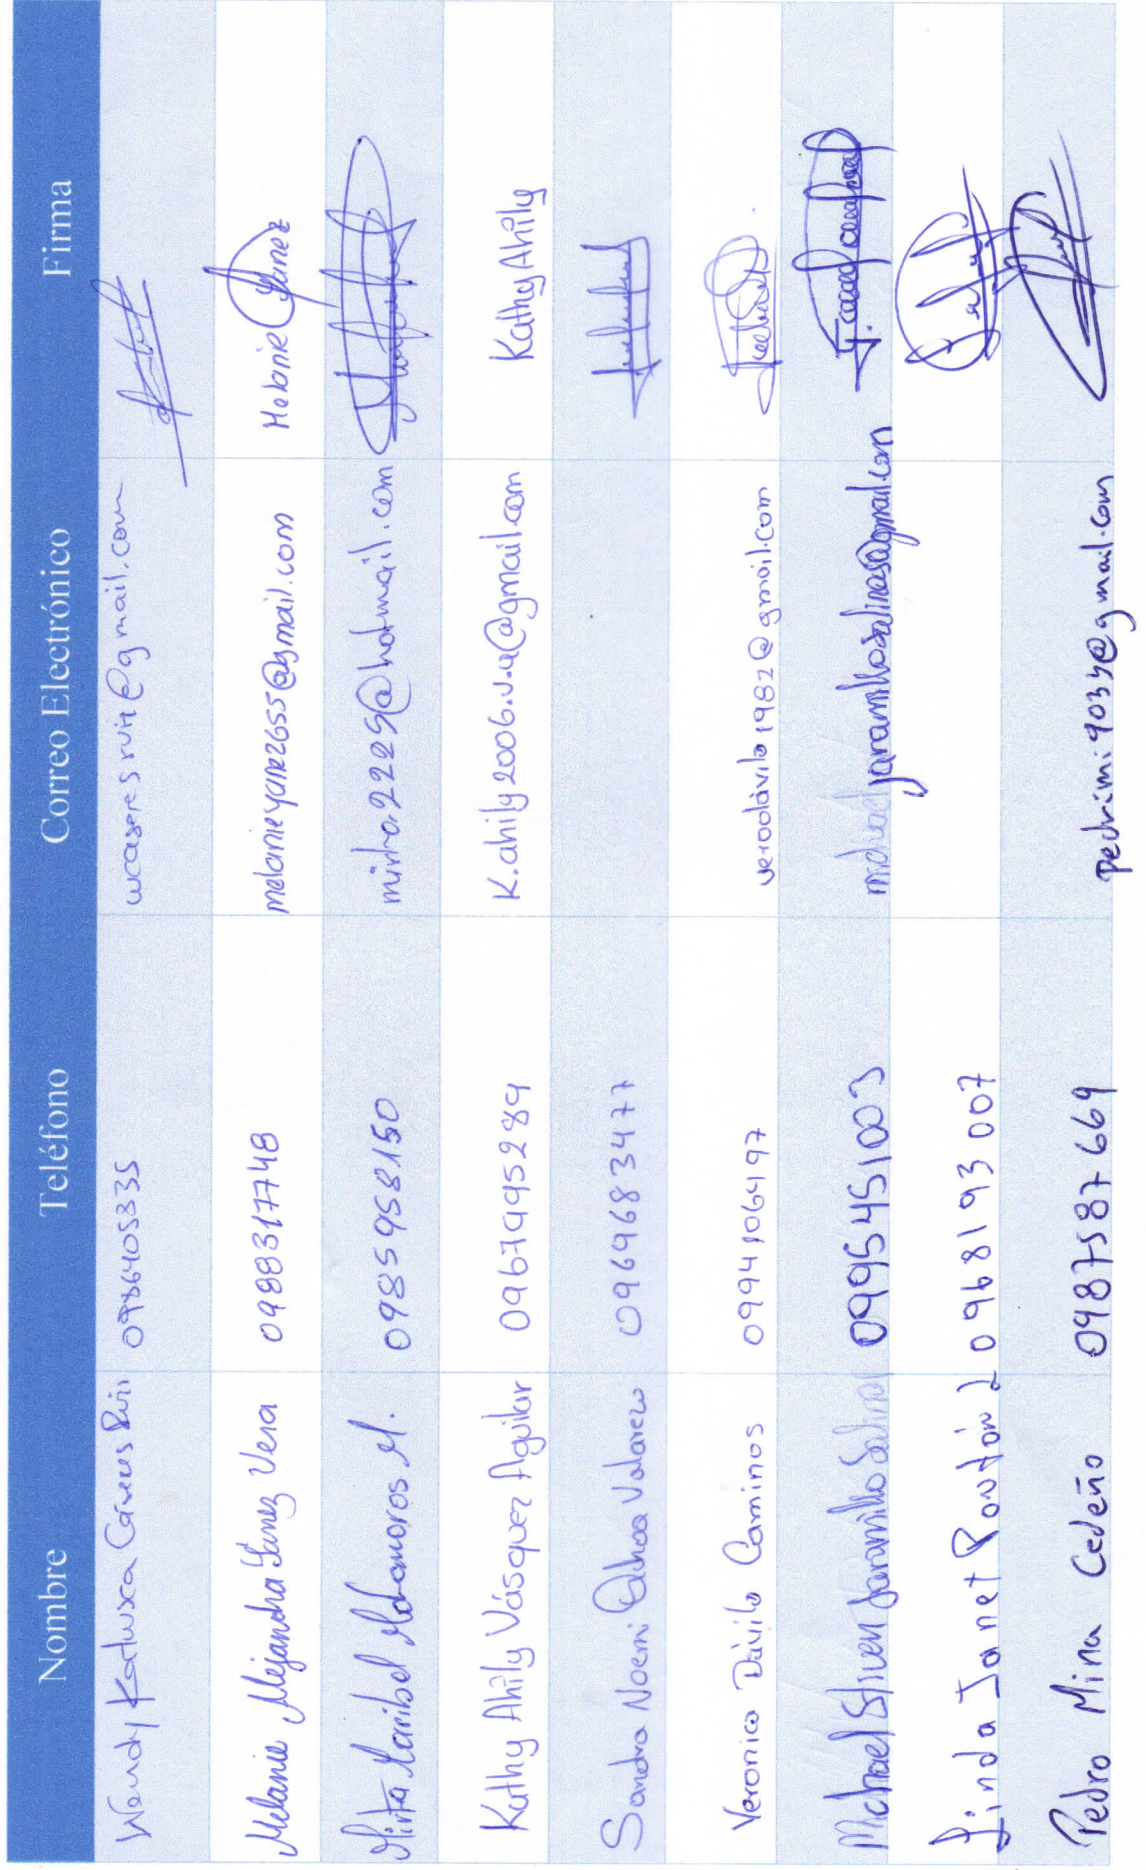 Nombre Teléfono Correo Electrónico Firma
Wendy Katiusca Caceres Ruiz 0986405335 wcaceresruiz@gmail.com
Melanie Alejandra Yanez Vera 0988317748 melanieyanez655@gmail.com Melanie Yanez
Mirta Maribel Matamoros M. 0985958150 mirta.2225@hotmail.com
Kathy Ahily Vásquez Aguilar 0967995284 K.ahily2006.v.a@gmail.com Kathy Ahily
Sandra Noemi Ochoa Valarezo 0969683477
Veronica Dávila Caminos 0994106497 verodávila1982@gmail.com
Michael Stiven Jaramillo Salinas 0995451003 michaeljaramillosalinas@gmail.com
Linda Janet 0968193007
Pedro Mina Cedeño 0987587669 pedrimi9034@gmail.com